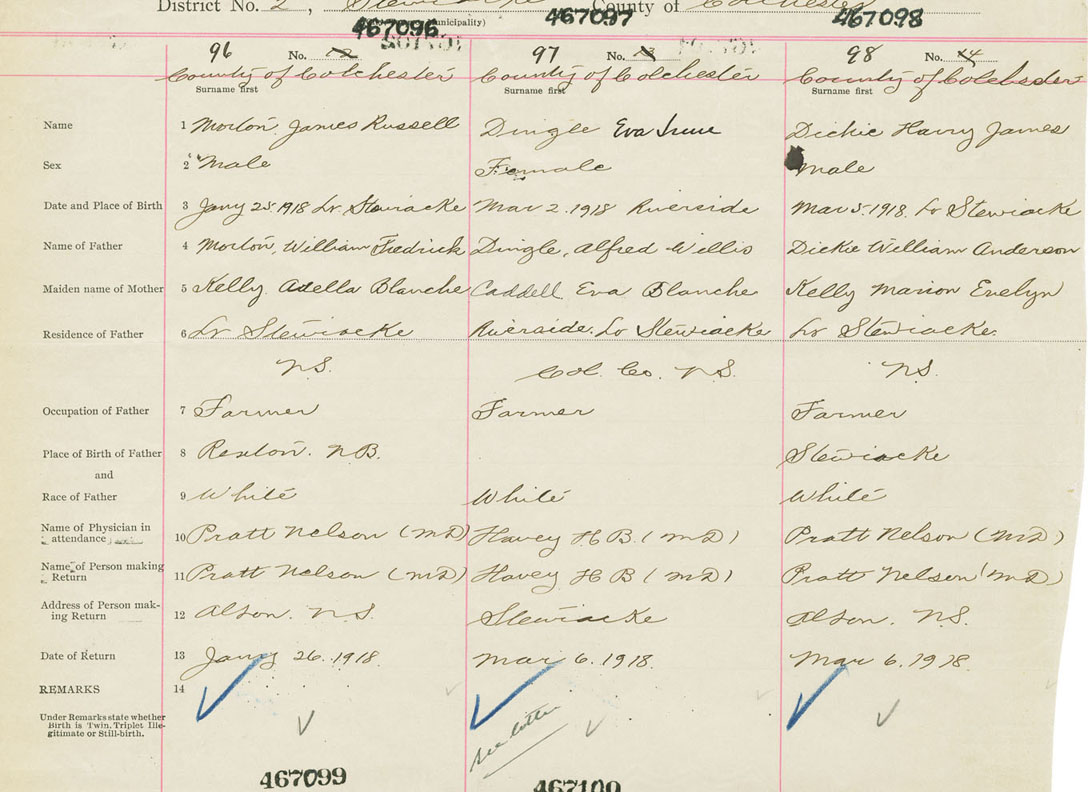 District No. 2, Stewiacke County of Colchester
(or Municipality)
467096 467097 467098
96 No. 97 No. 98 No. 14
County of Colchester County of Colchester County of Colchester
Surname first Surname first Surname first
Name 1 Morton, James Russell Dingle Eva Irene Dickie Harry James
Sex 2 Male Female Male
Date and Place of Birth 3 Jany 25. 1918 Lr Stewiacke Mar 2. 1918 Riverside Mar 5. 1918. Lr Stewiacke
Name of Father 4 Morton, William Fredrick Dingle, Alfred Willis Dickie William Anderson
Maiden name of Mother 5 Kelly Adella Blanche Caddell Eva Blanche Kelly Marion Evelyn
Residence of Father 6 Lr Stewiacke Riverside. Lr Stewiacke Lr Stewiacke.
N.S. Col. Co. N.S. N.S.
Occupation of Father 7 Farmer Farmer Farmer
Place of Birth of Father 8 Rexton. N.B. Stewiacke
and
Race of Father 9 White White White
Name of Physician in attendance 10 Pratt Nelson (MD) Havey H B. (MD) Pratt Nelson (MD)
Name of Person making Return 11 Pratt Nelson (MD) Havey H B (MD) Pratt Nelson (MD)
Address of Person making Return 12 Alton. N.S. Stewiacke Alton. N.S.
Date of Return 13 Jany 26. 1918. Mar 6. 1918. Mar 6. 1918.
REMARKS 14
Under Remarks state whether
Birth is Twin. Triplet Ille-
gitimate or Still-birth.
see letter
467099 467100